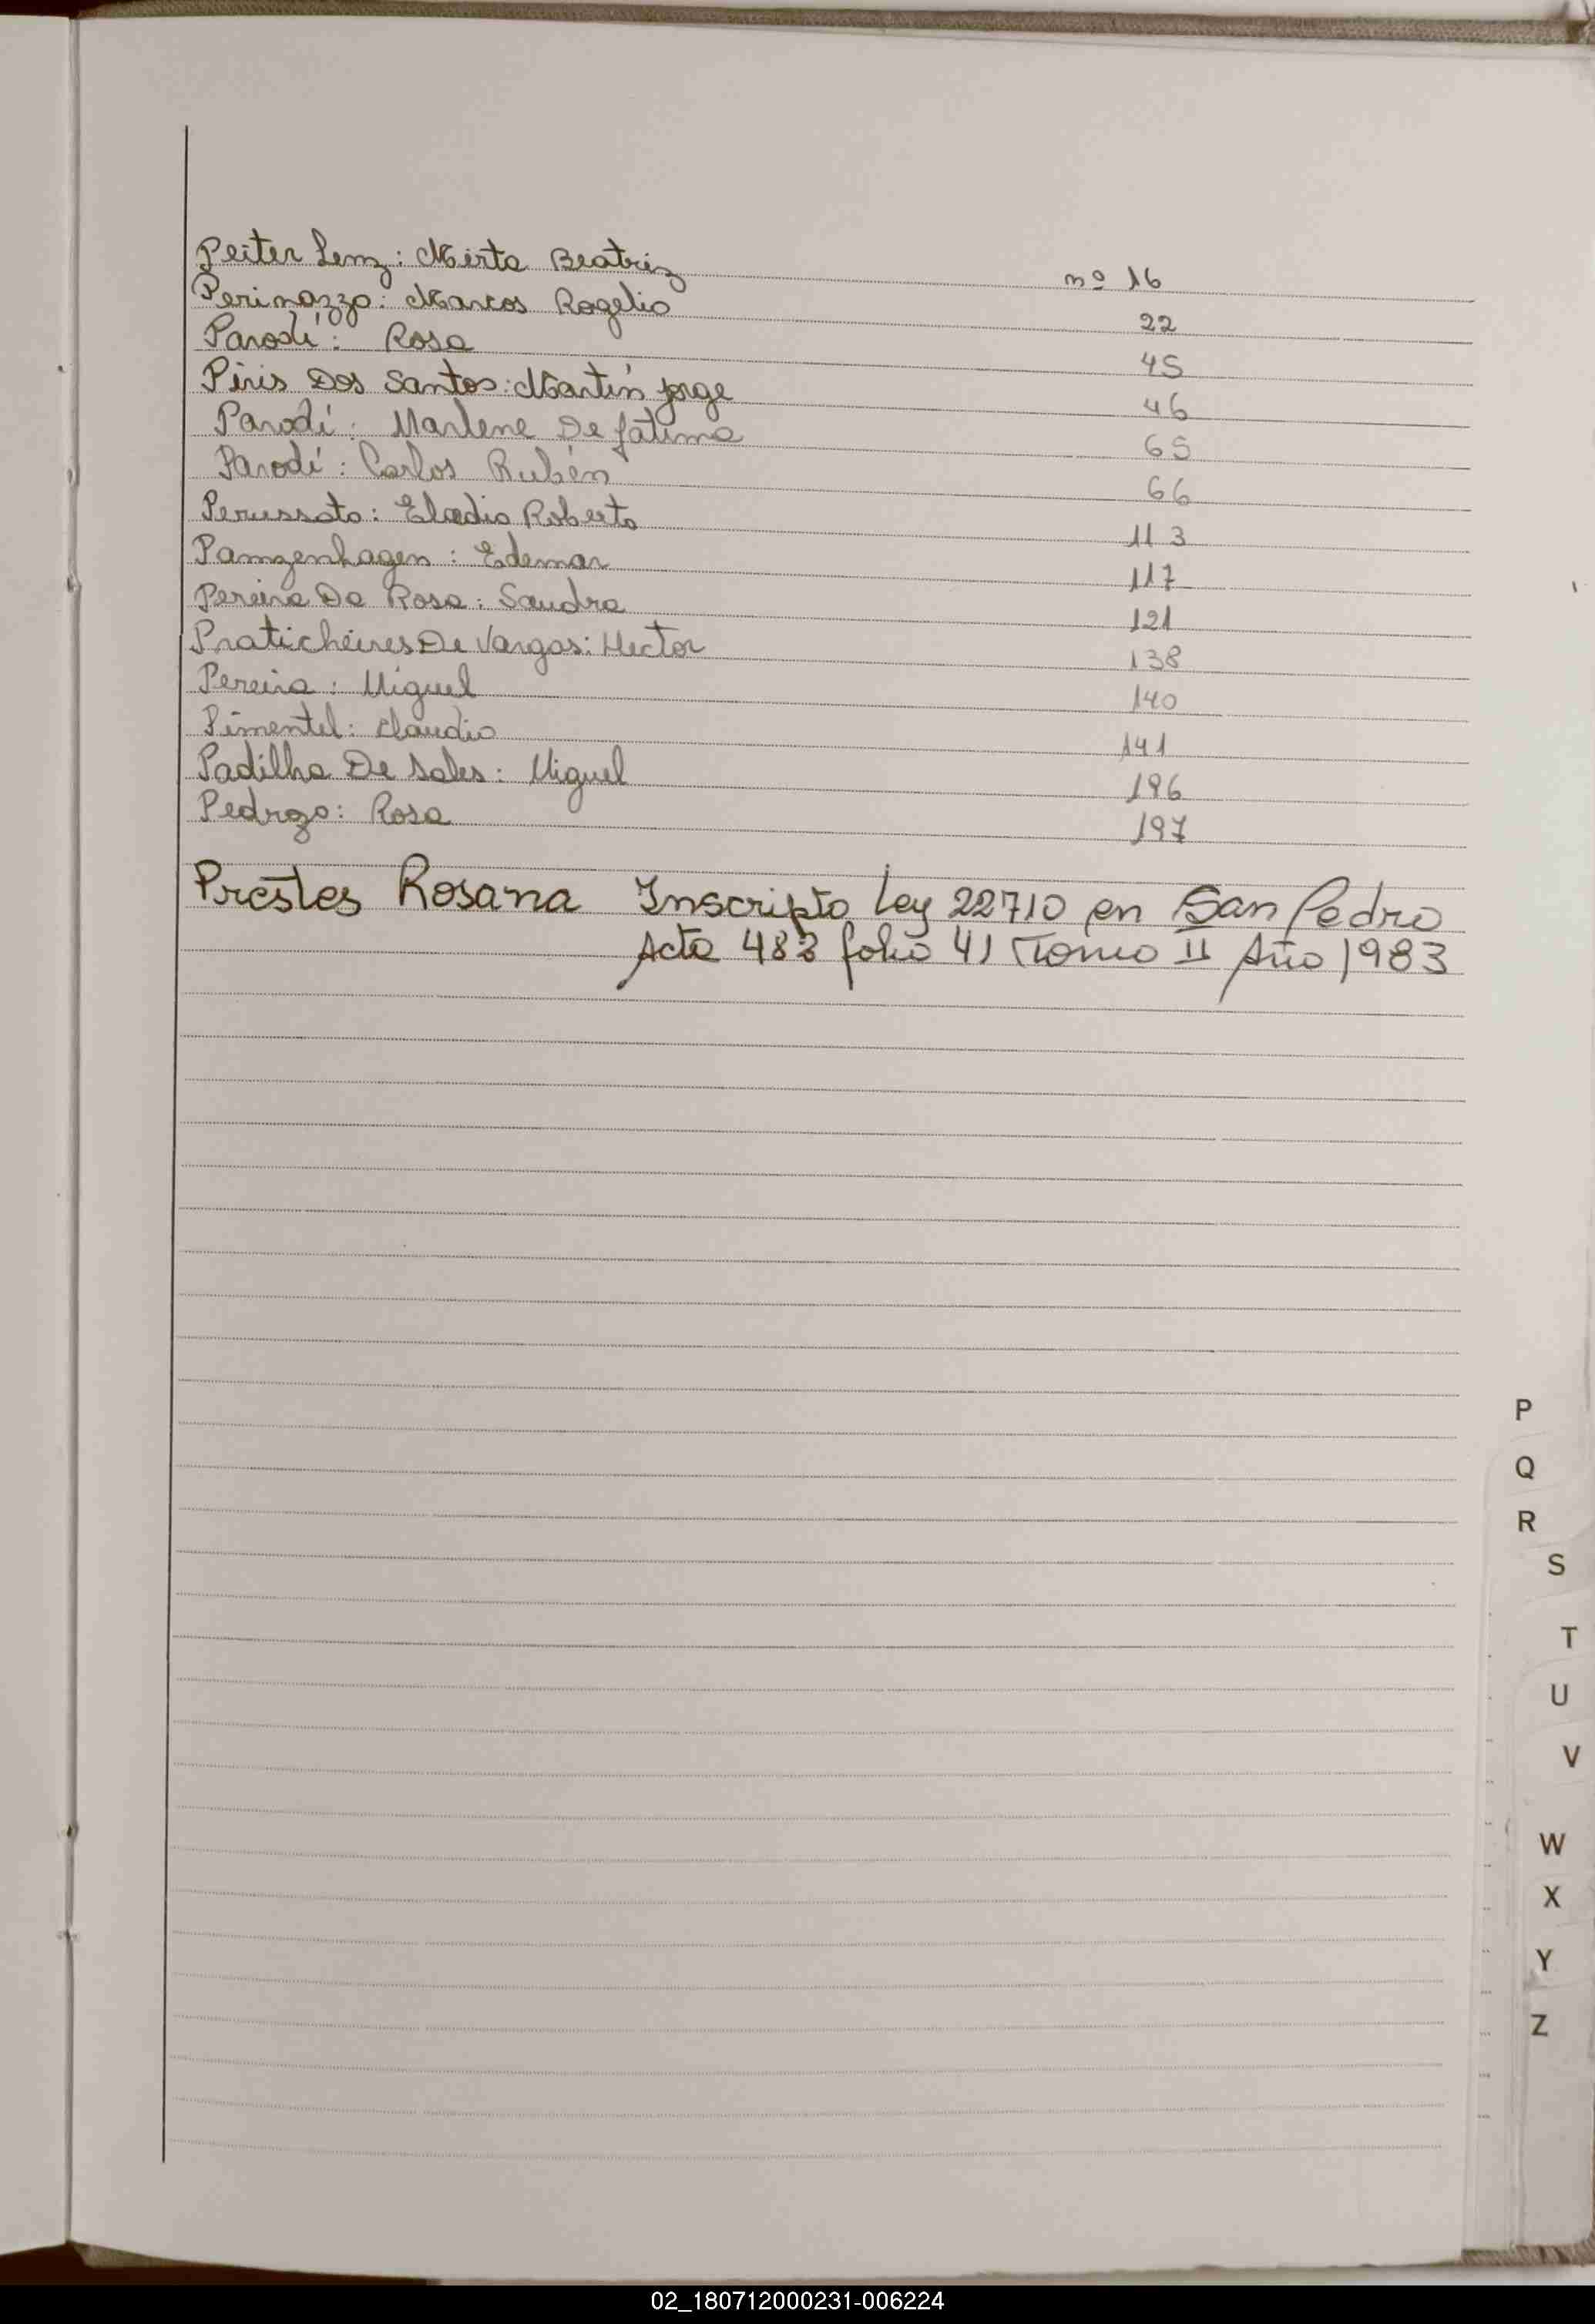 Peiter Lenz: Mirta Beatriz nº 16
Perinazzo: Marcos Rogelio 22
Parodí: Rosa 45
Piris Dos Santos: Martín Jorge 46
Parodí: Marlene De fátima 65
Parodí: Carlos Rubén 66
Perussato: Eladio Roberto 113
Panzenhagen: Edemar 117
Pereira Da Rosa: Sandra 121
Praticheires De Vargas: Hector 138
Pereira: Miguel 140
Pimentel: Claudio 141
Padilha De Sales: Miguel 196
Pedrozo: Rosa 197
Prestes Rosana Inscripto Ley 22710 en San Pedro
Acta 483 folio 41 Tomo II Año 1983
P
Q
R
S
T
U
V
W
X
Y
Z
02_180712000231-006224